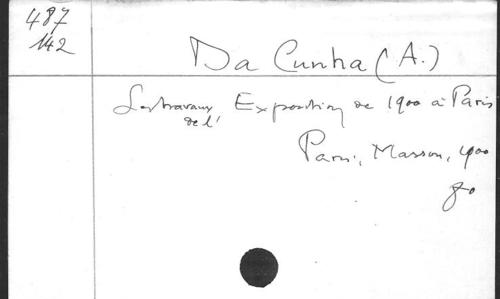 487
142
Da Cunha (A.)
Les travaux de l' Exposition de 1900 à Paris
Paris, Masson, 1900
8o